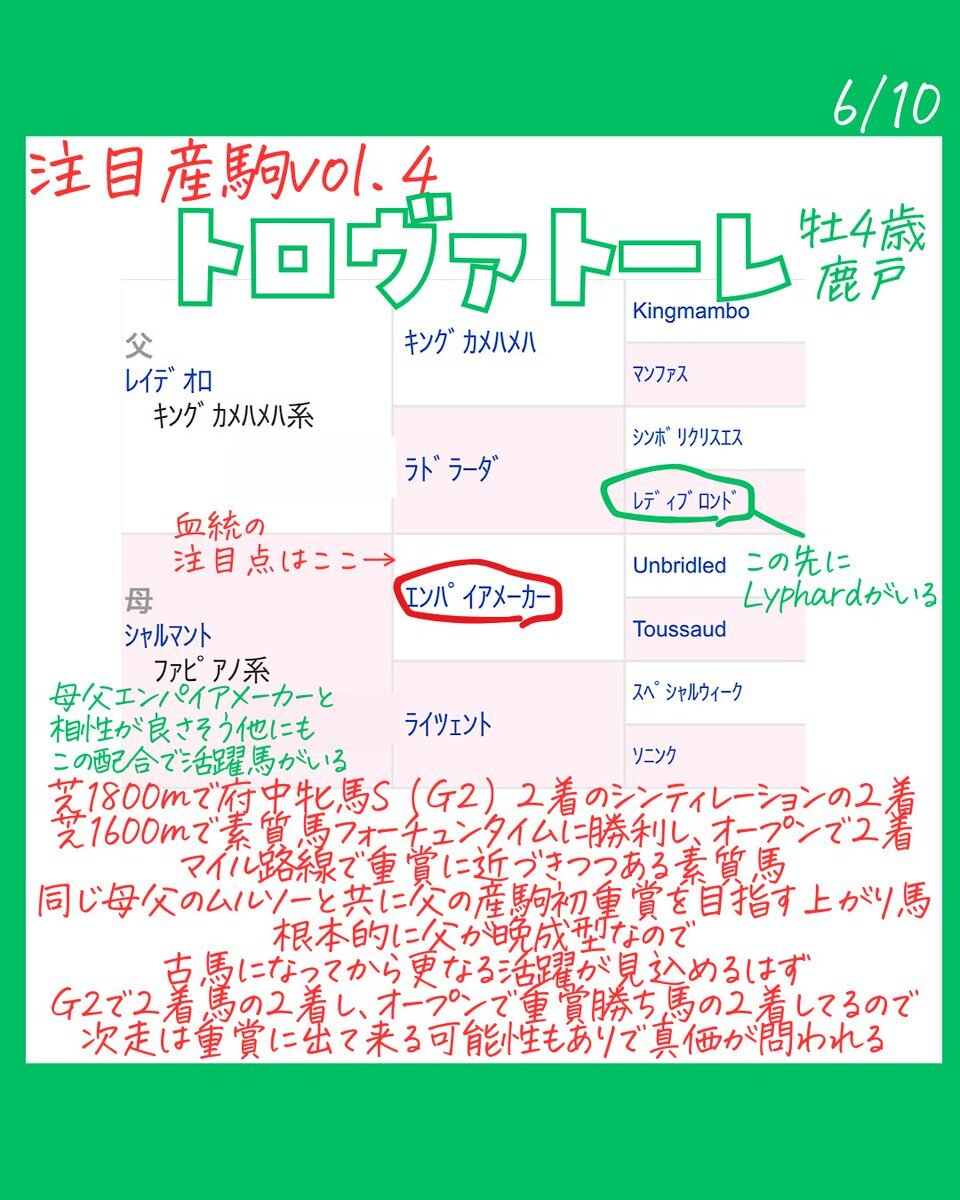 6/10
注目産駒vol.4
トロヴァトーレ
牡4歳
鹿戸
父
ﾚｲﾃﾞｵﾛ
ｷﾝｸﾞｶﾒﾊﾒﾊ系
ｷﾝｸﾞｶﾒﾊﾒﾊ
Kingmambo
ﾏﾝﾌｧｽ
ﾗﾄﾞﾗｰﾀﾞ
ｼﾝﾎﾞﾘｸﾘｽｴｽ
ﾚﾃﾞｨﾌﾞﾛﾝﾄﾞ
この先に
Lyphardがいる
血統の
注目点はここ→
母
ｼｬﾙﾏﾝﾄ
ﾌｧﾋﾟｱﾉ系
ｴﾝﾊﾟｲｱﾒｰｶｰ
Unbridled
Toussaud
ﾗｲﾂｪﾝﾄ
ｽﾍﾟｼｬﾙｳｨｰｸ
ｿﾆﾝｸ
母父エンパイアメーカーと
相性が良さそう他にも
この配合で活躍馬がいる
芝1800mで府中牝馬S（G2）2着のシンティレーションの2着
芝1600mで素質馬フォーチュンタイムに勝利し、オープンで2着
マイル路線で重賞に近づきつつある素質馬
同じ母父のムルソーと共に父の産駒初重賞を目指す上がり馬
根本的に父が晩成型なので
古馬になってから更なる活躍が見込めるはず
G2で2着馬の2着し、オープンで重賞勝ち馬の2着してるので
次走は重賞に出て来る可能性もありで真価が問われる